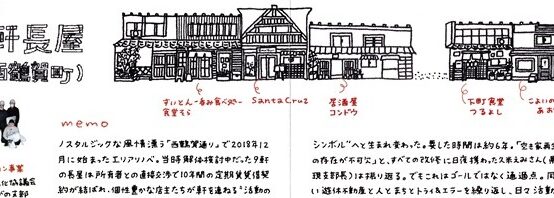 軒長屋
西鶴賀町)
すいとん・呑み食べ処
食堂そら
SantaCruz
居酒屋
コンドウ
下町食堂
つるよし
こよいの
memo
ノスタルジックな風情漂う"西鶴賀通り"で2018年12
月に始まったエリアリノベ。当時解体検討中だった9軒
の長屋は所有者との直接交渉で10年間の定期賃貸借
契約が結ばれ、個性豊かな店主たちが軒を連ねる"活動の
シンボル"へと生まれ変わった。要した時間は約6年。「空き家
の存在が不可欠」と、すべての改修に日度携わった久米えみさん(
現支部長)は振り返る。でもこれはゴールではなく通過点。同
い遊休不動産と人とまちとトライ&エラーを繰り返し、日々活動
ン事業
化協議会
がの支部